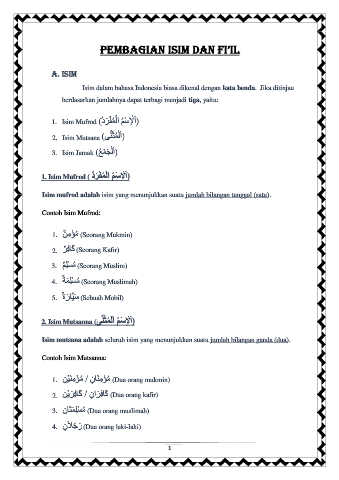 PEMBAGIAN ISIM DAN FI'IL
A. ISIM
Isim dalam bahasa Indonesia biasa dikenal dengan kata benda. Jika ditinjau
berdasarkan jumlahnya dapat terbagi menjadi tiga, yaitu:
1. Isim Mufrod (اَلْاِسْمُ الْمُفْرَدُ)
2. Isim Mutsana (اَلْمُثَنَّى)
3. Isim Jamak (اَلْجَمْعُ)
1. Isim Mufrod (اَلْاِسْمُ الْمُفْرَدُ)
Isim mufrod adalah isim yang menunjukkan suatu jumlah bilangan tunggal (satu).
Contoh Isim Mufrod:
1. مُؤْمِنٌ (Seorang Mukmin)
2. كَافِرٌ (Seorang Kafir)
3. مُسْلِمٌ (Seorang Muslim)
4. مُسْلِمَةٌ (Seorang Muslimah)
5. سَيَّارَةٌ (Sebuah Mobil)
2. Isim Mutsanna (اَلْاِسْمُ الْمُثَنَّى)
Isim mutsana adalah seluruh isim yang menunjukkan suatu jumlah bilangan ganda (dua).
Contoh Isim Mutsanna:
1. مُؤْمِنَانِ / مُؤْمِنَيْنِ (Dua orang mukmin)
2. كَافِرَانِ / كَافِرَيْنِ (Dua orang kafir)
3. مُسْلِمَتَانِ (Dua orang muslimah)
4. رَجُلَانِ (Dua orang laki-laki)
1